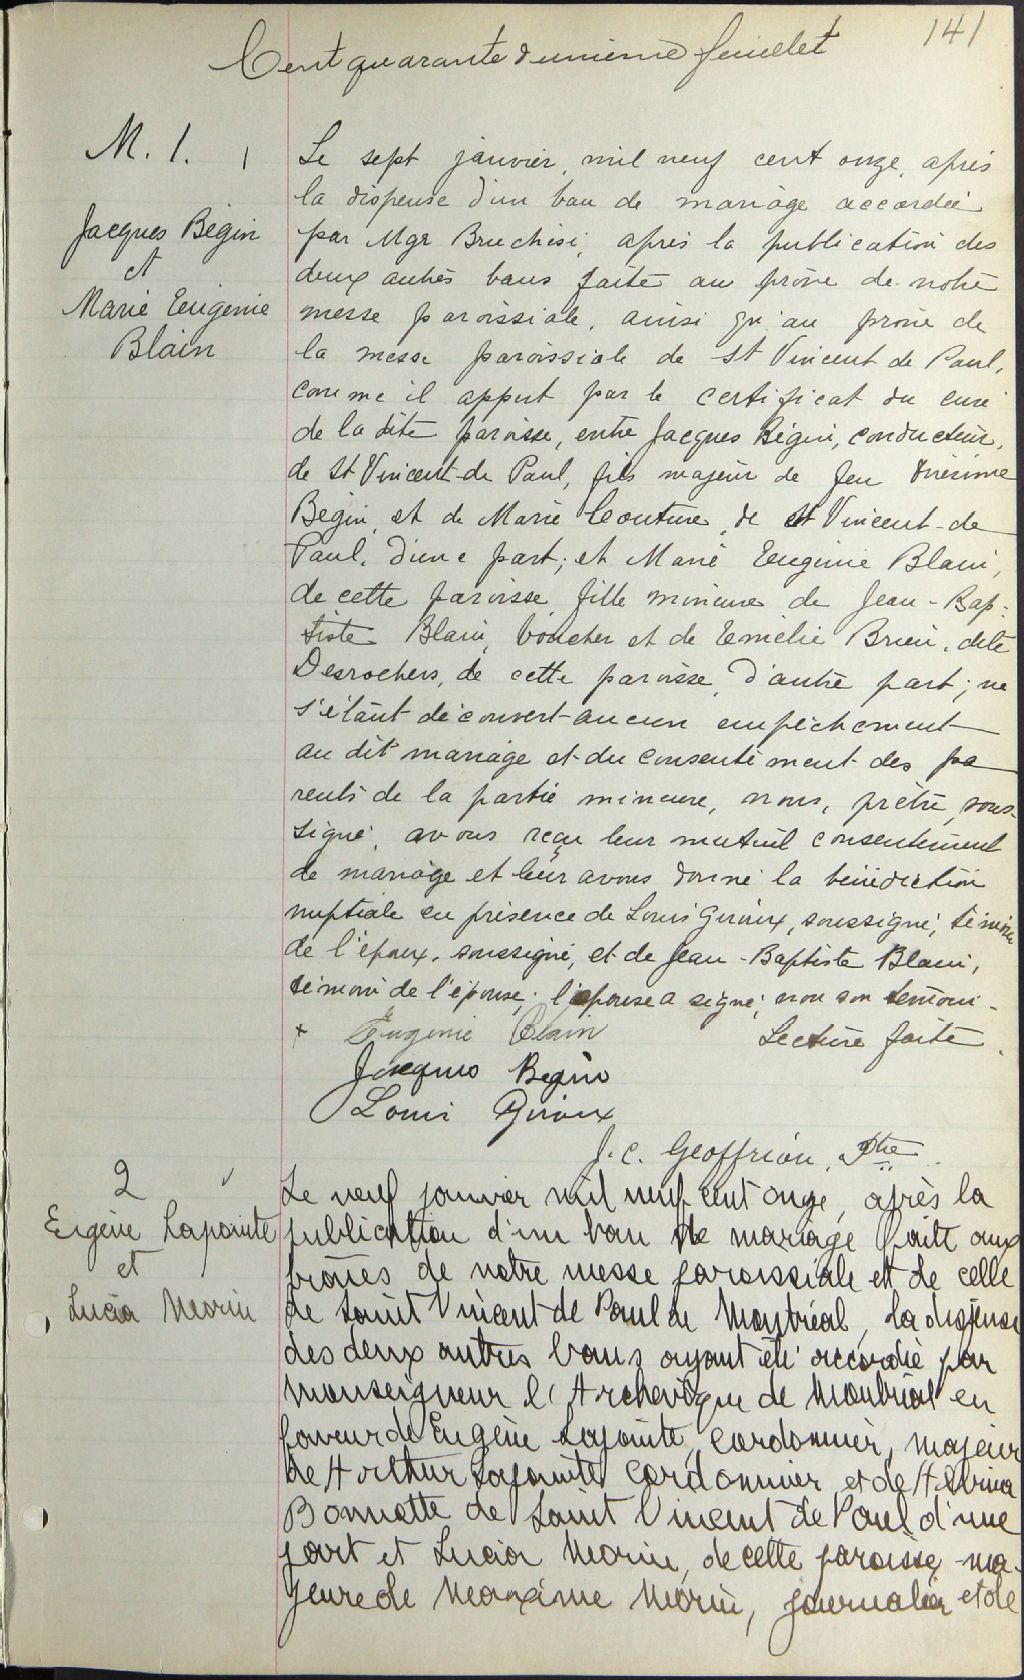 141
Cent quarante unième feuillet
M. 1.
Jacques Bégin
et
Marie Eugénie
Blain
Le sept janvier, mil neuf cent onze, après
la dispense d'un ban de mariage accordée
par Mgr Bruchési, après la publication des
deux autres bans faite au prône de notre
messe paroissiale, ainsi qu'au prône de
la messe paroissiale de St Vincent de Paul,
comme il appert par le certificat du curé
de la dite paroisse, entre Jacques Bégin, conducteur,
de St Vincent-de Paul, fils majeur de feu Onésime
Bégin, et de Marie Couture, de St Vincent-de
Paul, d'une part; et Marie Eugénie Blain,
de cette paroisse, fille mineure de Jean-Bap-
tiste Blain, boucher et de Emélie Brien, dite
Desrochers, de cette paroisse, d'autre part; ne
s'étant découvert aucun empêchement
au dit mariage et du consentement des pa
rents de la partie mineure, nous, prêtre, sous-
signé, avons reçu leur mutuel consentement
de mariage et leur avons donné la bénédiction
nuptiale en présence de Louis Giroux, soussigné, témoin
de l'époux, soussigné, et de Jean-Baptiste Blain,
témoin de l'épouse; l'épouse a signé; non son témoin-
+ Eugenie Blain Lecture faite.
Jacques Begin
Louis Giroux
J. C. Geoffrion, Ptre
2
Eugène Lapointe
et
Lucia Morin
Le neuf janvier mil neuf cent onze, après la
publication d'un ban de mariage faite aux
prônes de notre messe paroissiale et de celle
de Saint Vincent de Paul de Montréal, la dispense
des deux autres bans ayant été accordée par
Monseigneur l'Archevêque de Montréal en
faveur de Eugène Lapointe, cordonnier, majeur
de Arthur Lapointe cordonnier et de
Bonnette de Saint Vincent de Paul d'une
part et Lucia Morin, de cette paroisse ma-
jeure de Maxime Morin, journalier et de